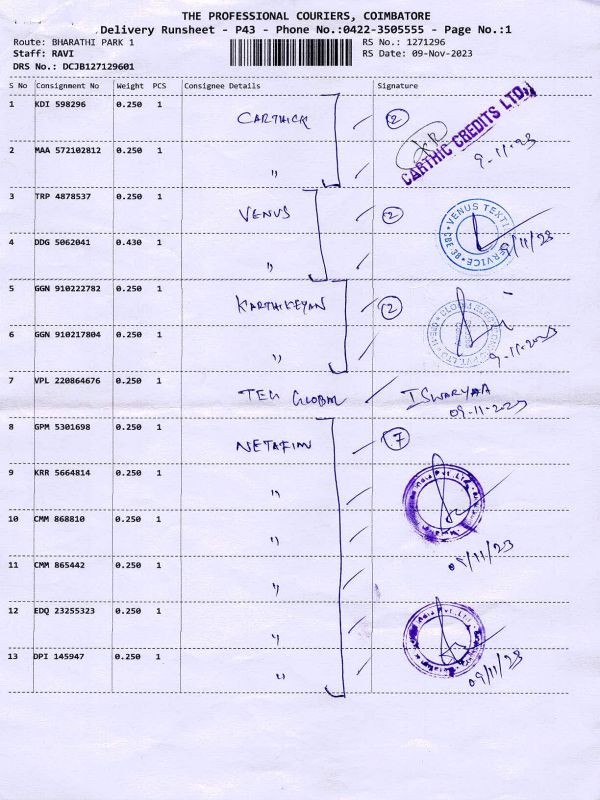 THE PROFESSIONAL COURIERS, COIMBATORE
Delivery Runsheet - P43 - Phone No.:0422-3505555 - Page No.:1
Route: BHARATHI PARK 1 RS No.: 1271296
Staff: RAVI RS Date: 09-Nov-2023
DRS No.: DCJB127129601
S No Consignment No Weight PCS Consignee Details Signature
1 KDI 598296 0.250 1 CARTHICK 2
CARTHIC CREDITS LTD.
2 MAA 572102812 0.250 1 " 9-11-23
3 TRP 4878537 0.250 1 VENUS 2 VENUS TEXTILE SERVICE
4 DDG 5062041 0.430 1 " 9/11/23
5 GGN 910222782 0.250 1 KARTHIKEYAN 2
6 GGN 910217804 0.250 1 " 9-11-2023
7 VPL 220864676 0.250 1 TEXI GLOBAL ISWARYAA
09-11-2023
8 GPM 5301698 0.250 1 NETAFIM 7
9 KRR 5664814 0.250 1 " India Pvt. Ltd.
10 CMM 868810 0.250 1 "
09/11/23
11 CMM 865442 0.250 1 "
12 EDQ 23255323 0.250 1 " India Pvt. Ltd.
13 DPI 145947 0.250 1 " 09/11/23